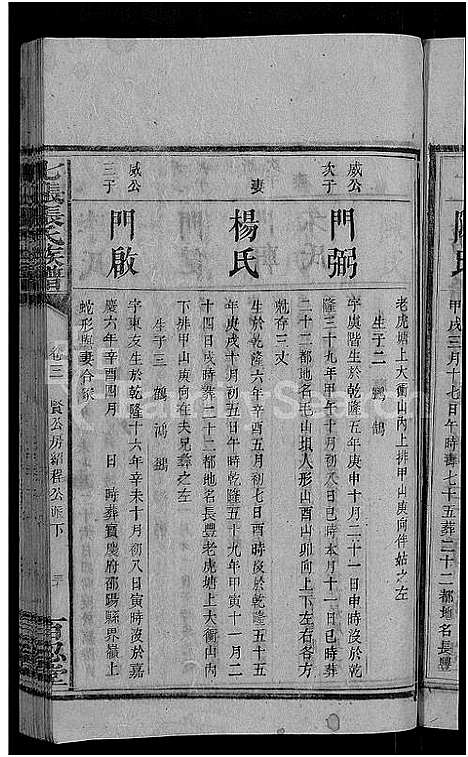 甲戌三月十七日午時壽七十五葬二十二都地名長豐
老虎塘上大衝山內上排甲山庚向伴姑之左
生子二 鸚 鵠
威公
次子
門弼
字庚階生於乾隆五年庚申十月二十一日申時沒於乾
隆三十九年甲午十月初八日巳時本月十一日巳時葬
二十二都地名毛山垻人形山酉山卯向上下左右各方
䞇存三丈
妻
楊氏
生於乾隆六年辛酉五月初七日酉時沒於乾隆五十五
年庚戌十月初五日午時乾隆五十九年甲寅十一月二
十四日戌時葬二十二都地名長豐老虎塘上大衝山內
下排甲山庚向在夫兄彝之左
生子三 鶴 鴻 鵝
威公
三子
門啟
字東友生於乾隆十六年辛未十月初八日寅時沒於嘉
慶六年辛酉四月 日 時葬寶慶府邵陽縣界嶺上
蛇形與妻合冢
張氏族譜
卷三 賢公房紹程公派下